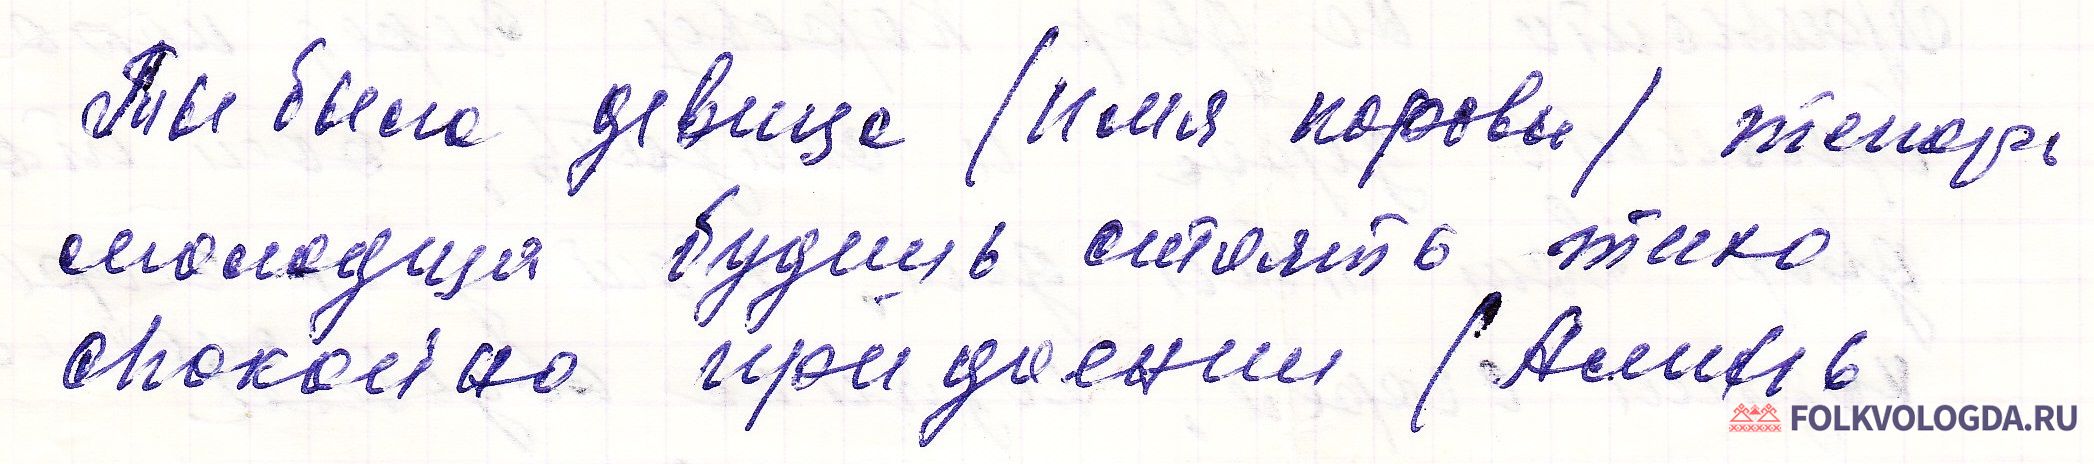 Ты была девица (имя коровы) тепарь
молодица будишь стоять тихо
спокойно при доении (Аминь
FOLKVOLOGDA.RU